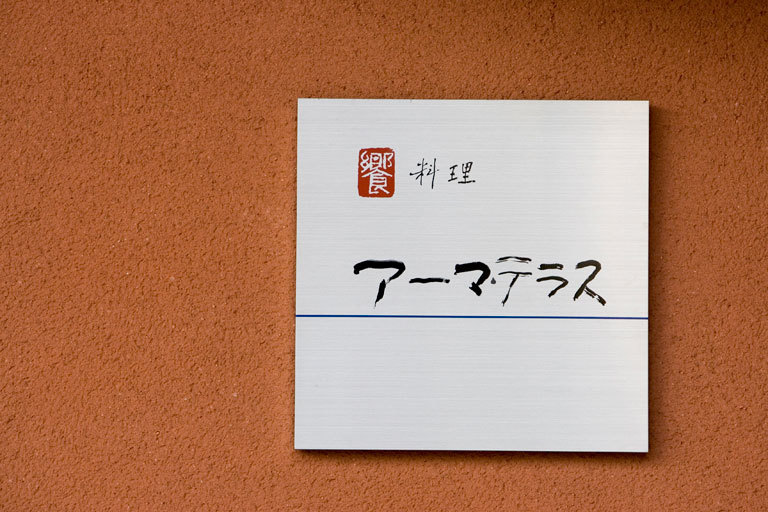 饗 料理
アーマ・テラス